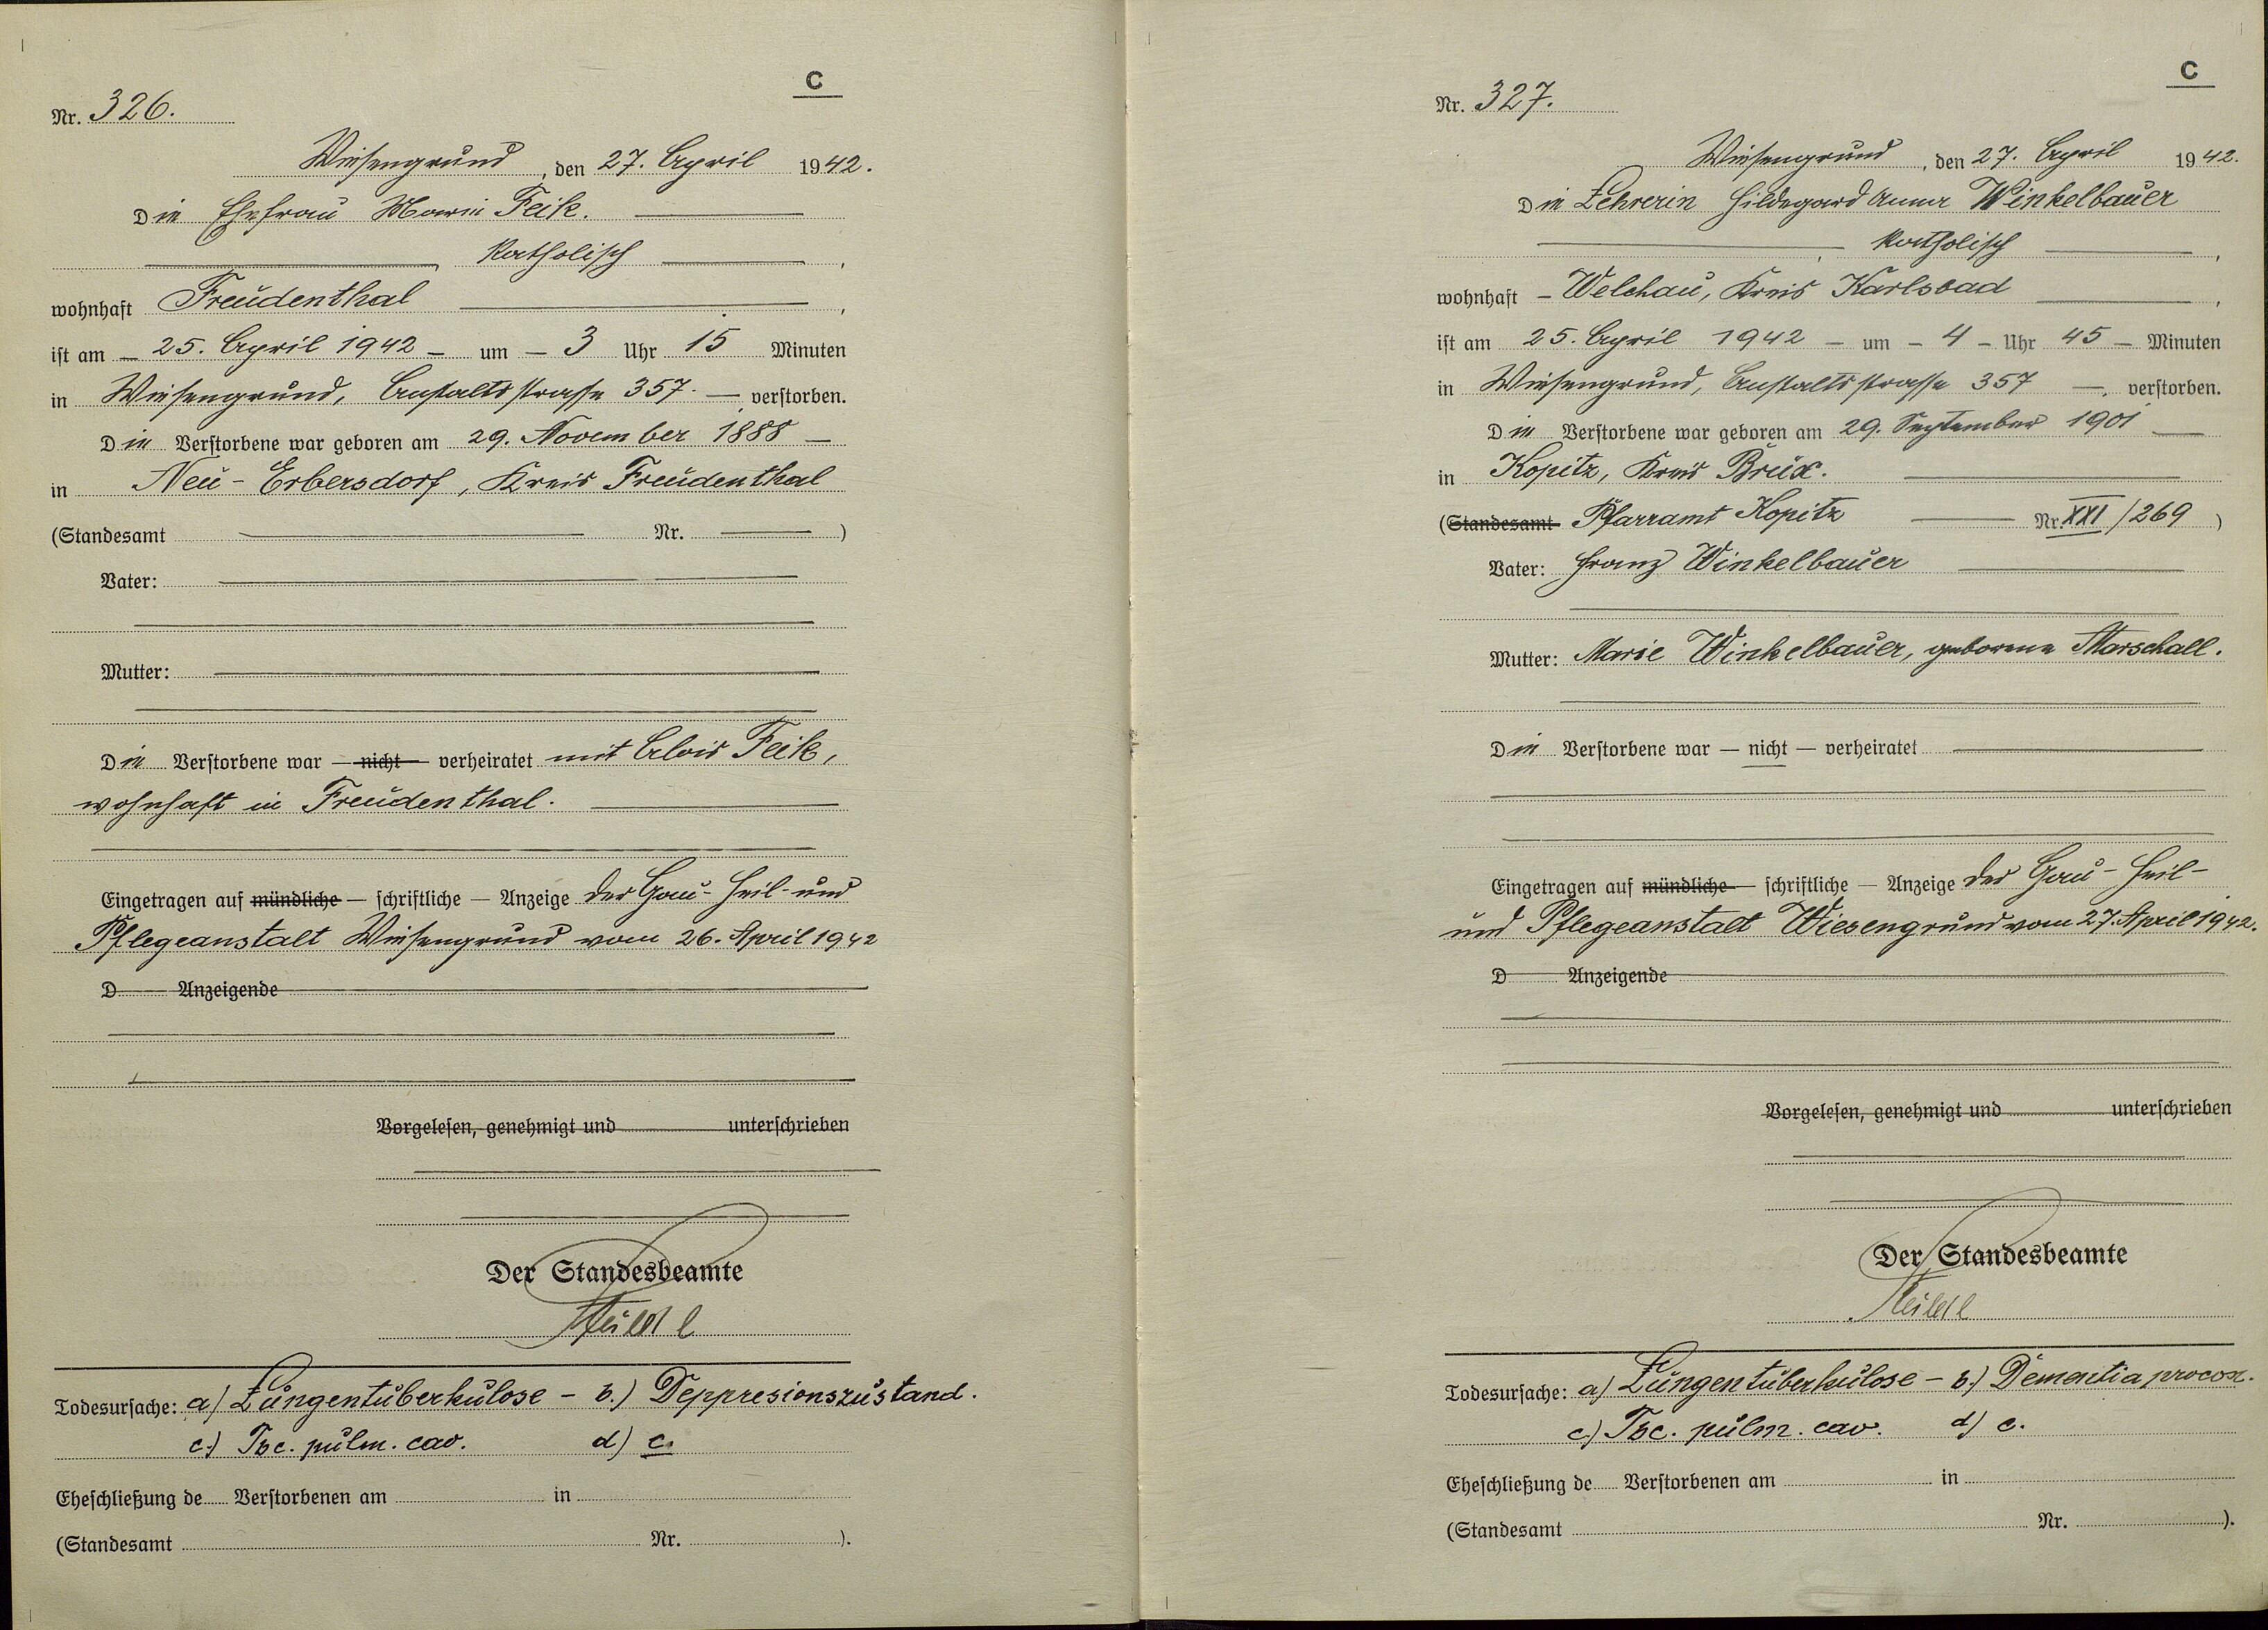 C
Nr. 326.
Wiesengrund, den 27. April 1942.
Die Ehefrau Marie Feik.
katholisch,
wohnhaft Freudenthal,
ist am – 25. April 1942 – um – 3 Uhr 15 Minuten
in Wiesengrund, Anstaltsstrasse 357. – verstorben.
Die Verstorbene war geboren am 29. November 1888 –
in Neu-Erbersdorf, Kreis Freudenthal
(Standesamt Nr. )
Vater:
Mutter:
Die Verstorbene war — nicht — verheiratet mit Alois Feik,
wohnhaft in Freudenthal.
Eingetragen auf mündliche — schriftliche — Anzeige der Gau-Heil-und
Pflegeanstalt Wiesengrund vom 26. April 1942
D Anzeigende
Vorgelesen, genehmigt und unterschrieben
Der Standesbeamte
Todesursache: a) Lungentuberkulose – b.) Deppresionszustand.
c.) Tbc. pulm. cav. d) c.
Eheschließung de Verstorbenen am in
(Standesamt Nr. ).
C
Nr. 327.
Wiesengrund, den 27. April 1942.
Die Lehrerin Hildegard Anna Winkelbauer
katholisch,
wohnhaft – Welchau, Kreis Karlsbad,
ist am 25. April 1942 – um – 4 – Uhr 45 – Minuten
in Wiesengrund, Anstaltsstrasse 357 –, verstorben.
Die Verstorbene war geboren am 29. September 1901
in Kopitz, Kreis Brüx.
(Standesamt Pfarramt Kopitz Nr. XXI/269 )
Vater: Franz Winkelbauer
Mutter: Marie Winkelbauer, geborene Marschall.
Die Verstorbene war — nicht — verheiratet
Eingetragen auf mündliche — schriftliche — Anzeige der Gau-Heil-
und Pflegeanstalt Wiesengrund vom 27. April 1942.
D Anzeigende
Vorgelesen, genehmigt und unterschrieben
Der Standesbeamte
Todesursache: a) Lungentuberkulose – b.) Dementia procox.
c) Tbc. pulm. cav. d) c.
Eheschließung de Verstorbenen am in
(Standesamt Nr. ).